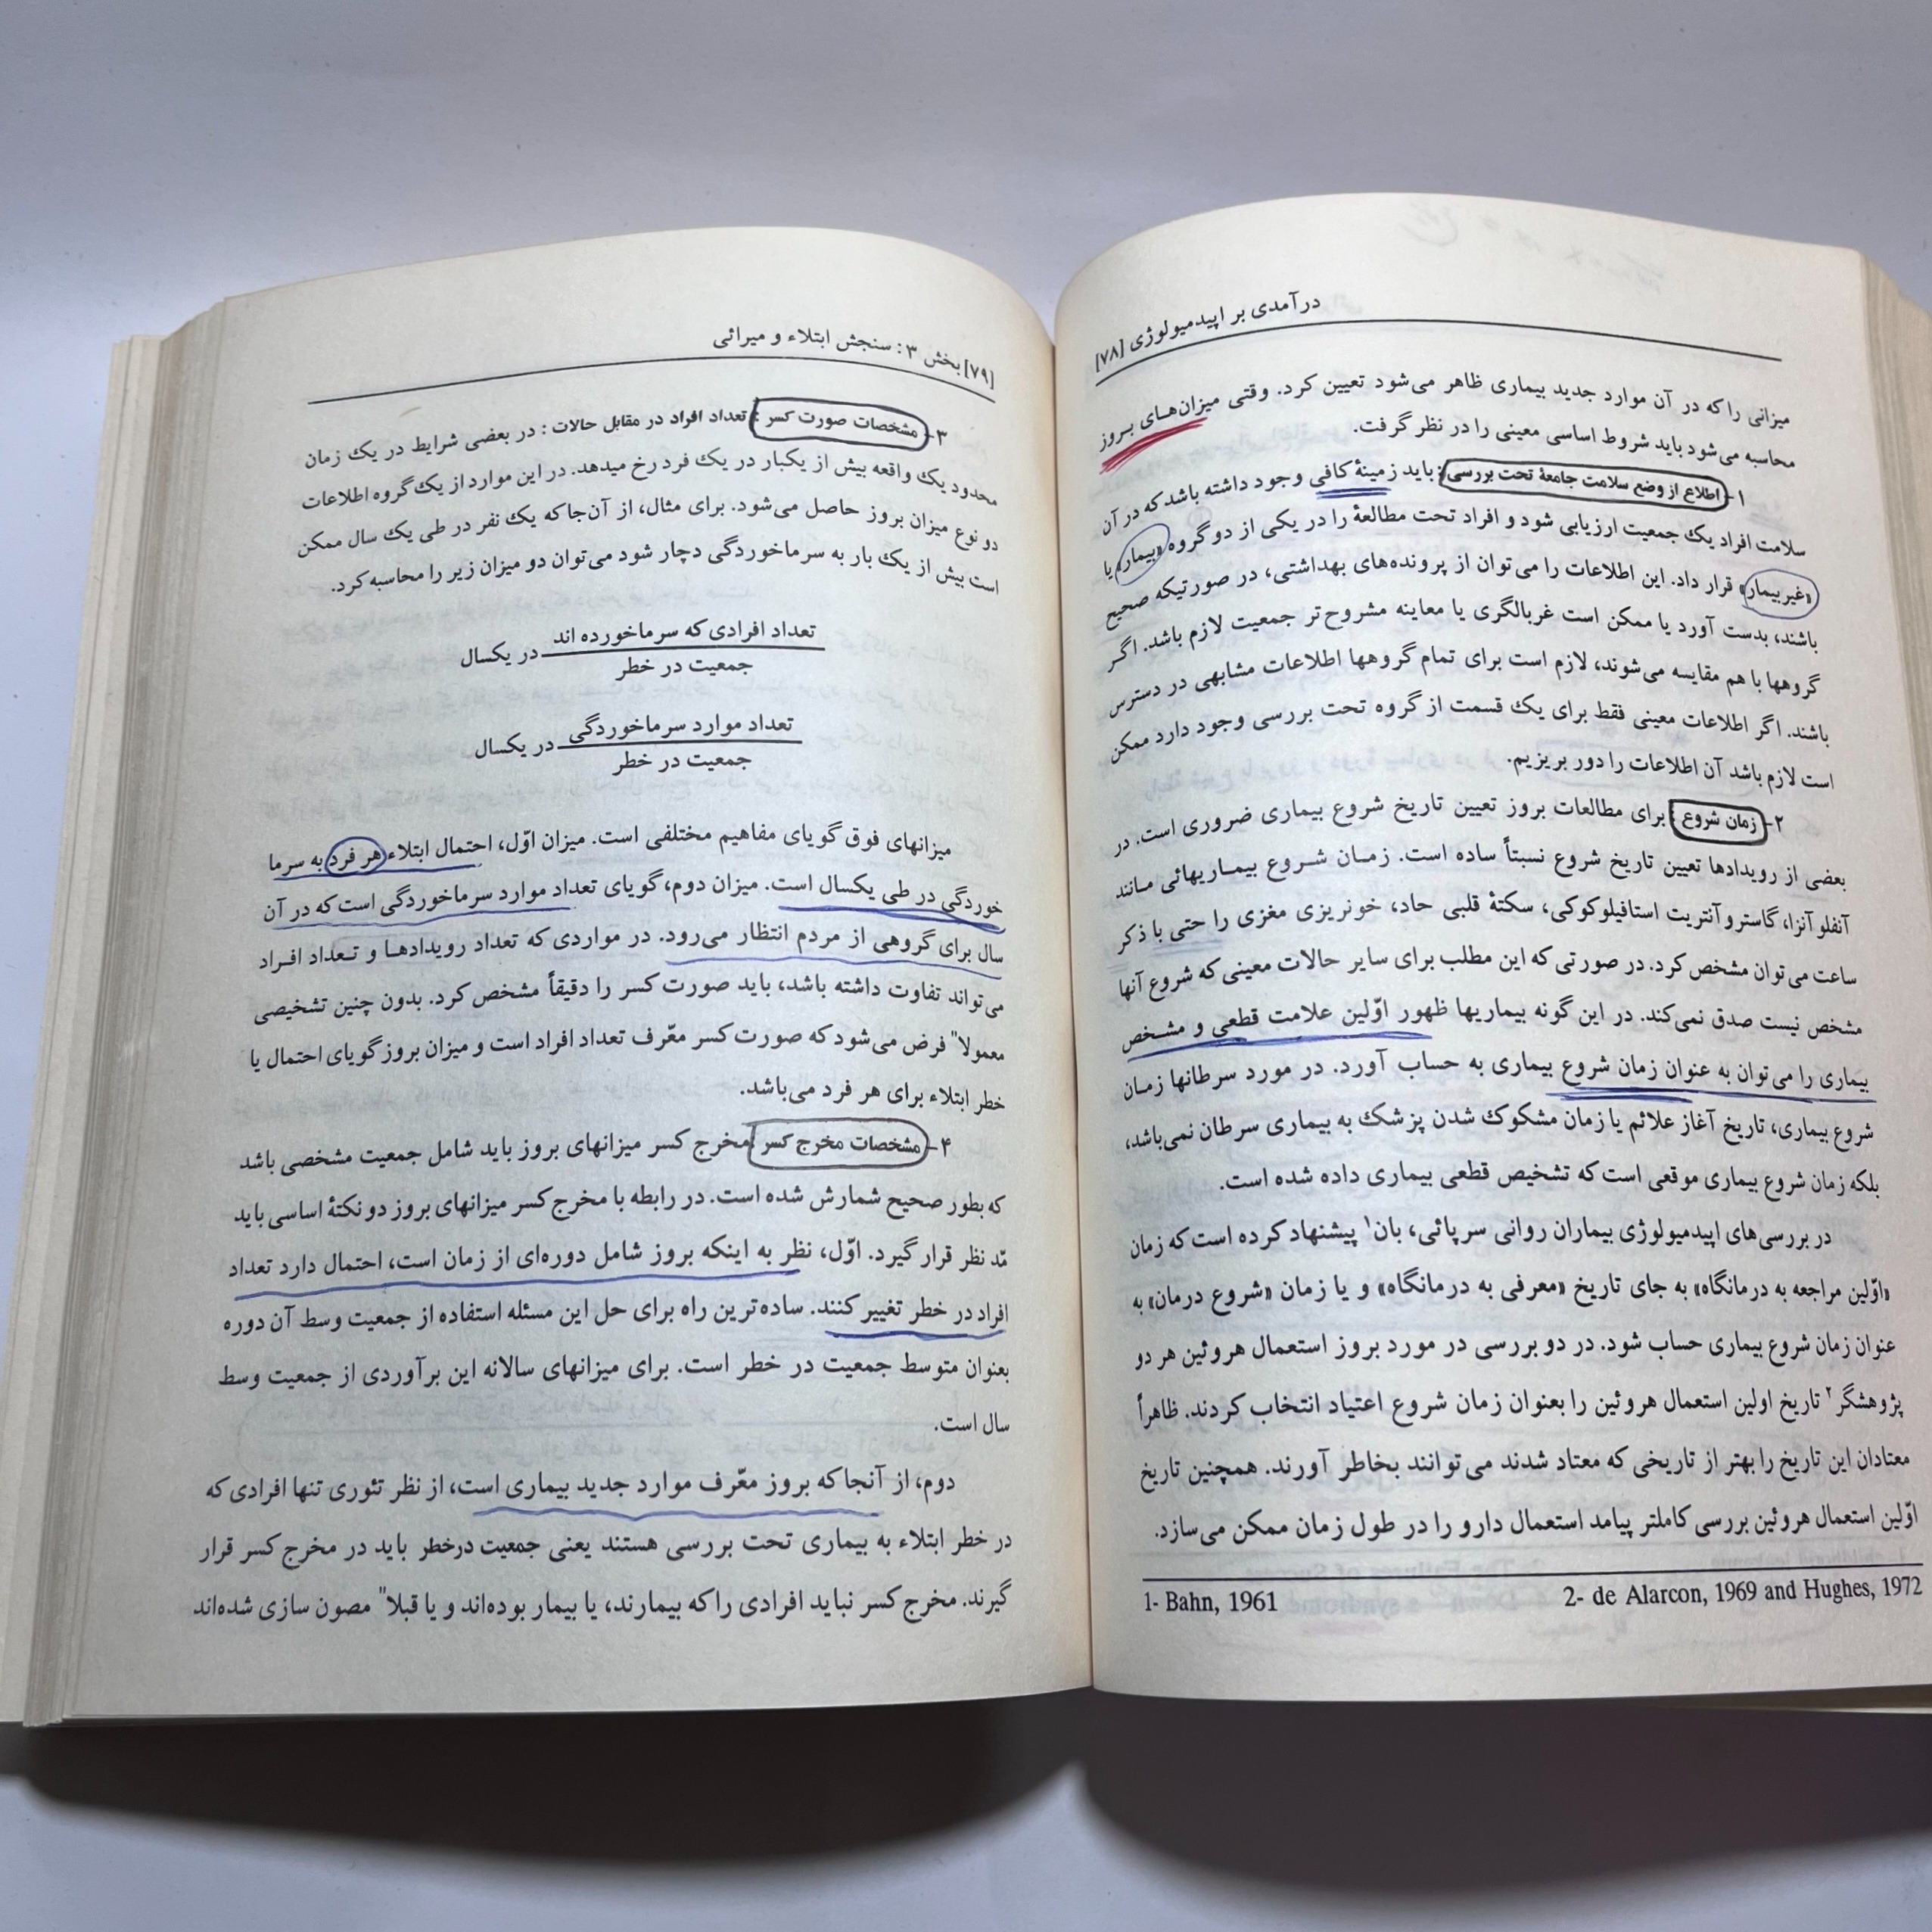 درآمدی بر اپیدمیولوژی [۷۸]
میزانی را که در آن موارد جدید بیماری ظاهر می‌شود تعیین کرد. وقتی میزان‌های بروز
محاسبه می‌شود باید شروط اساسی معینی را در نظر گرفت.
۱- اطلاع از وضع سلامت جامعهٔ تحت بررسی: باید زمینهٔ کافی وجود داشته باشد که در آن
سلامت افراد یک جمعیت ارزیابی شود و افراد تحت مطالعهٔ را در یکی از دو گروه «بیمار» یا
«غیربیمار» قرار داد. این اطلاعات را می‌توان از پرونده‌های بهداشتی، در صورتیکه صحیح
باشند، بدست آورد یا ممکن است غربالگری یا معاینه مشروح‌تر جمعیت لازم باشد. اگر
گروهها با هم مقایسه می‌شوند، لازم است برای تمام گروهها اطلاعات مشابهی در دسترس
باشند. اگر اطلاعات معینی فقط برای یک قسمت از گروه تحت بررسی وجود دارد ممکن
است لازم باشد آن اطلاعات را دور بریزیم.
۲- زمان شروع: برای مطالعات بروز تعیین تاریخ شروع بیماری ضروری است. در
بعضی از رویدادها تعیین تاریخ شروع نسبتاً ساده است. زمان شروع بیماریهائی مانند
آنفلوآنزا، گاستروآنتریت استافیلوکوکی، سکتهٔ قلبی حاد، خونریزی مغزی را حتی با ذکر
ساعت می‌توان مشخص کرد. در صورتی که این مطلب برای سایر حالات معینی که شروع آنها
مشخص نیست صدق نمی‌کند. در این گونه بیماریها ظهور اوّلین علامت قطعی و مشخص
بیماری را می‌توان به عنوان زمان شروع بیماری به حساب آورد. در مورد سرطانها زمان
شروع بیماری، تاریخ آغاز علائم یا زمان مشکوک شدن پزشک به بیماری سرطان نمی‌باشد،
بلکه زمان شروع بیماری موقعی است که تشخیص قطعی بیماری داده شده است.
در بررسی‌های اپیدمیولوژی بیماران روانی سرپائی، بان۱ پیشنهاد کرده است که زمان
«اوّلین مراجعه به درمانگاه» به جای تاریخ «معرفی به درمانگاه» و یا زمان «شروع درمان» به
عنوان زمان شروع بیماری حساب شود. در دو بررسی در مورد بروز استعمال هروئین هر دو
پژوهشگر۲ تاریخ اولین استعمال هروئین را بعنوان زمان شروع اعتیاد انتخاب کردند. ظاهراً
معتادان این تاریخ را بهتر از تاریخی که معتاد شدند می‌توانند بخاطر آورند. همچنین تاریخ
اوّلین استعمال هروئین بررسی کاملتر پیامد استعمال دارو را در طول زمان ممکن می‌سازد.
1- Bahn, 1961 2- de Alarcon, 1969 and Hughes, 1972
[۷۹] بخش ۳: سنجش ابتلاء و میرائی
۳- مشخصات صورت کسر: تعداد افراد در مقابل حالات: در بعضی شرایط در یک زمان
محدود یک واقعه بیش از یکبار در یک فرد رخ میدهد. در این موارد از یک گروه اطلاعات
دو نوع میزان بروز حاصل می‌شود. برای مثال، از آن‌جا که یک نفر در طی یک سال ممکن
است بیش از یک بار به سرماخوردگی دچار شود می‌توان دو میزان زیر را محاسبه کرد.
تعداد افرادی که سرماخورده اند
در یکسال
جمعیت در خطر
تعداد موارد سرماخوردگی
در یکسال
جمعیت در خطر
میزانهای فوق گویای مفاهیم مختلفی است. میزان اوّل، احتمال ابتلاء هر فرد به سرما
خوردگی در طی یکسال است. میزان دوم، گویای تعداد موارد سرماخوردگی است که در آن
سال برای گروهی از مردم انتظار می‌رود. در مواردی که تعداد رویدادها و تعداد افراد
می‌تواند تفاوت داشته باشد، باید صورت کسر را دقیقاً مشخص کرد. بدون چنین تشخیصی
معمولا" فرض می‌شود که صورت کسر معّرف تعداد افراد است و میزان بروز گویای احتمال یا
خطر ابتلاء برای هر فرد می‌باشد.
۴- مشخصات مخرج کسر: مخرج کسر میزانهای بروز باید شامل جمعیت مشخصی باشد
که بطور صحیح شمارش شده است. در رابطه با مخرج کسر میزانهای بروز دو نکتهٔ اساسی باید
مّد نظر قرار گیرد. اوّل، نظر به اینکه بروز شامل دوره‌ای از زمان است، احتمال دارد تعداد
افراد در خطر تغییر کنند. ساده‌ترین راه برای حل این مسئله استفاده از جمعیت وسط آن دوره
بعنوان متوسط جمعیت در خطر است. برای میزانهای سالانه این برآوردی از جمعیت وسط
سال است.
دوم، از آنجا که بروز معّرف موارد جدید بیماری است، از نظر تئوری تنها افرادی که
در خطر ابتلاء به بیماری تحت بررسی هستند یعنی جمعیت درخطر باید در مخرج کسر قرار
گیرند. مخرج کسر نباید افرادی را که بیمارند، یا بیمار بوده‌اند و یا قبلا" مصون سازی شده‌اند